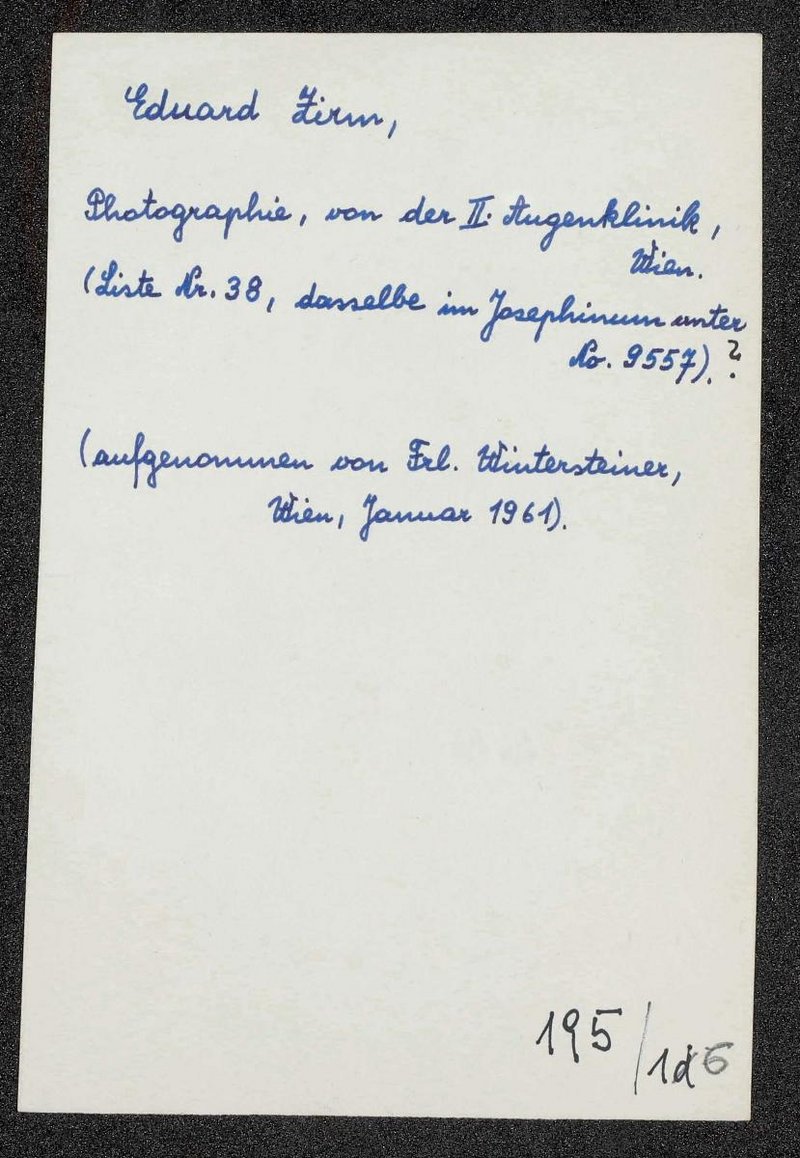 Eduard Zirm,
Photographie, von der II. Augenklinik,
Wien.
(Liste Nr. 38, dasselbe im Josephinum unter
No. 9557). ?
(aufgenommen von Frl. Wintersteiner,
Wien, Januar 1961).
195/